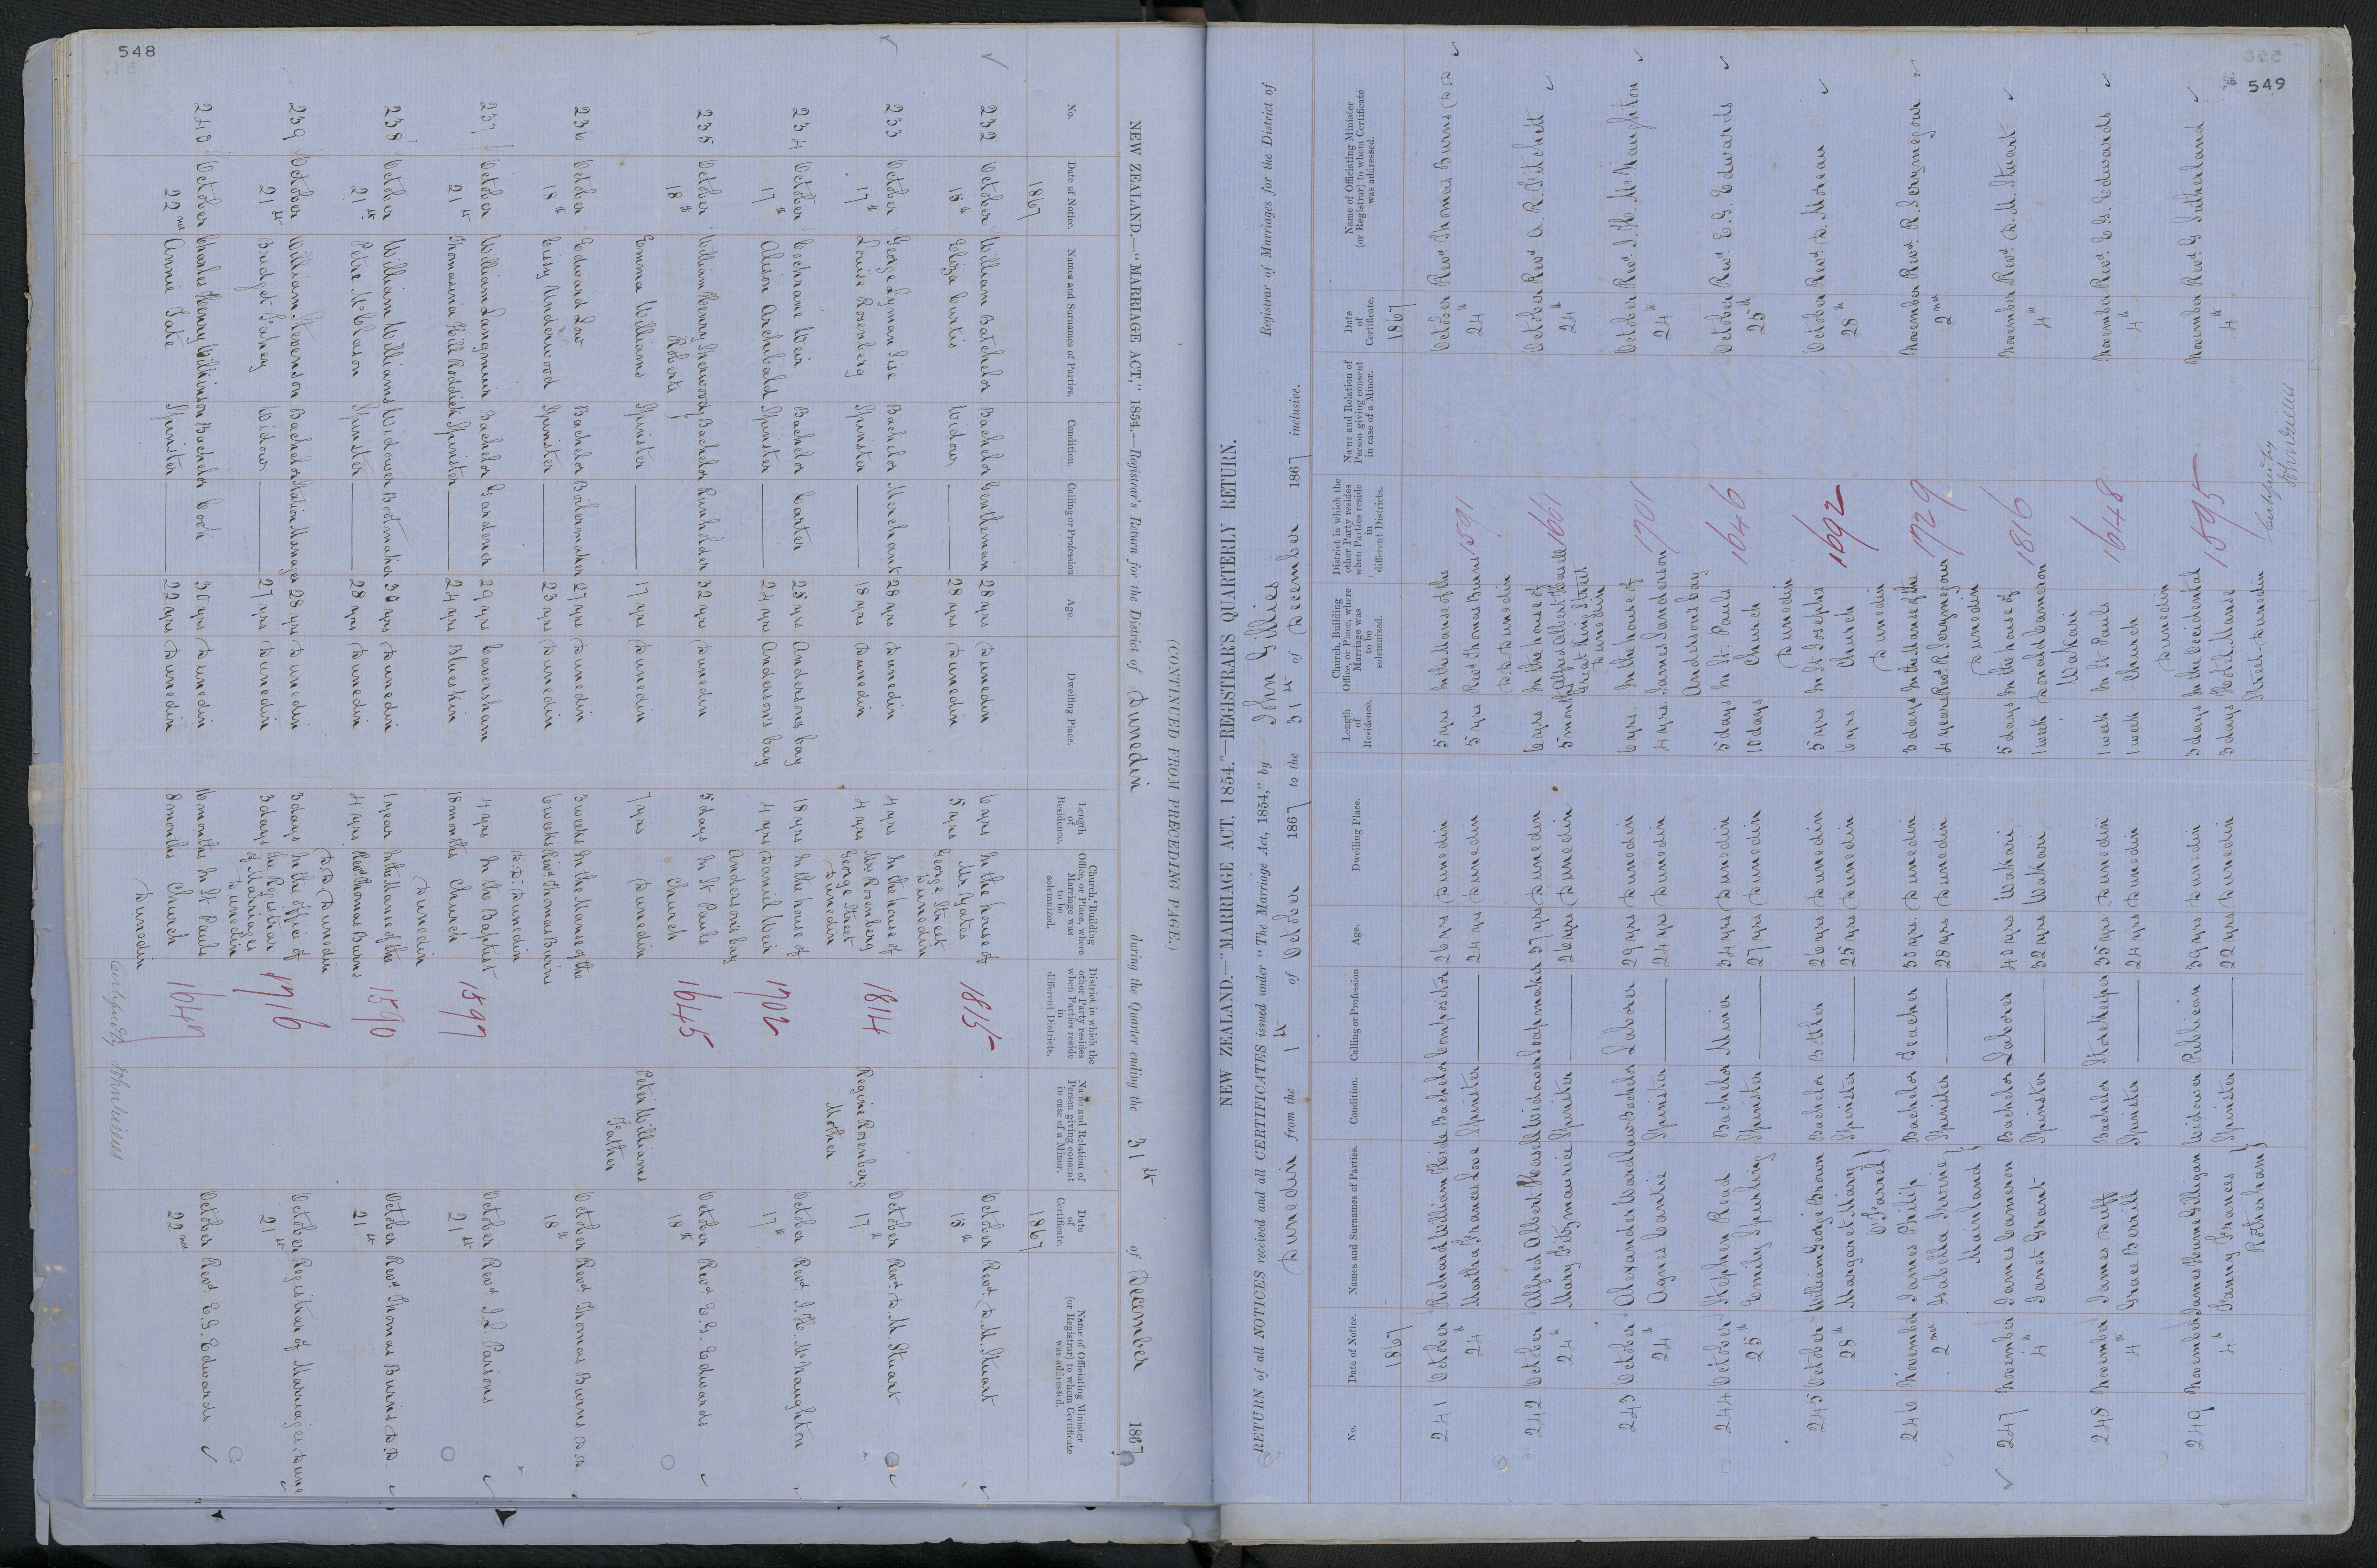 548
NEW ZEALAND.—"MARRIAGE ACT," 1854.—Registrar's Return for the District of Dunedin during the Quarter ending the 31st of December 1867
(CONTINUED FROM PRECEDING PAGE.)
No. Date of Notice. Names and Surnames of Parties. Condition. Calling or Profession Age. Dwelling Place. Length of Residence. Church, Building Office, or Place, where Marriage was to be solemnized. District in which the other Party resides when Parties reside in different Districts. Name and Relation of Person giving consent in case of a Minor. Date of Certificate. Name of Officiating Minister (or Registrar) to whom Certificate was addressed.
1867 1867
232 October William Batchelor Bachelor Gentleman 28 yrs Dunedin 6 yrs In the house of 1815 October Revd D. M. Stuart
15th Eliza Curtis Widow 28 yrs Dunedin 5 yrs Mr Yates 15th
George Street
Dunedin
233 October George Lyman Lise Bachelor Merchant 28 yrs Dunedin 4 yrs In the house of 1814 Regine Rosenberg October Revd D. M. Stuart
17th Louise Rosenberg Spinster 18 yrs Dunedin 4 yrs Mrs Rosenberg Mother 17th
George Street
Dunedin
234 October Cochrane Weir Bachelor Carter 25 yrs Andersons bay 18 yrs In the house of 1702 October Revd I. H. McNaughton
17th Alison Archibald Spinster 24 yrs Andersons bay 4 yrs Daniel Weir 17th
Andersons bay
235 October William Henry Sherwood Bachelor Runholder 32 yrs Dunedin 5 days In St Pauls 1645 October Revd E. G. Edwards
18th Roberts Church 18th
Emma Williams Spinster 17 yrs Dunedin 7 yrs Dunedin Peter Williams
Father
236 October Edward Low Bachelor Boilermaker 27 yrs Dunedin 3 weeks In the Manse of the October Revd Thomas Burns D.D.
18th Cissy Underwood Spinster 23 yrs Dunedin 6 weeks Revd Thomas Burns 18th
D.D. Dunedin
237 October William Langmuir Bachelor Gardener 29 yrs Caversham 4 yrs In the Baptist 1597 October Revd I. L. Parsons
21st Thomasina Hill Roddick Spinster 24 yrs Blueskin 18 months Church 21st
Dunedin
238 October William Williams Widower Bootmaker 30 yrs Dunedin 1 year In the Manse of the 1590 October Revd Thomas Burns D.D.
21st Petre McCleason Spinster 28 yrs Dunedin 4 yrs Revd Thomas Burns 21st
D.D. Dunedin
239 October William Stevenson Bachelor Station Manager 28 yrs Dunedin 3 days In the office of 1716 October Registrar of Marriages
21st Bridget Fahey Widow 27 yrs Dunedin 3 days the Registrar 21st
of Marriages
Dunedin
240 October Charles Henry Wilkinson Bachelor Cook 30 yrs Dunedin 16 months In St Pauls 1647 October Revd E. G. Edwards
22nd Annie Tate Spinster 22 yrs Dunedin 8 months Church 22nd
Dunedin
549
NEW ZEALAND.—"MARRIAGE ACT, 1854."—REGISTRAR'S QUARTERLY RETURN.
RETURN of all NOTICES received and all CERTIFICATES issued under "The Marriage Act, 1854," by John Gillies Registrar of Marriages for the District of
Dunedin from the 1st of October 1867 to the 31st of December 1867 inclusive.
No. Date of Notice. Names and Surnames of Parties. Condition. Calling or Profession Age. Dwelling Place. Length of Residence. Church, Building Office, or Place, where Marriage was to be solemnized. District in which the other Party resides when Parties reside in different Districts. Name and Relation of Person giving consent in case of a Minor. Date of Certificate. Name of Officiating Minister (or Registrar) to whom Certificate was addressed.
1867 1867
241 October Richard William Heide Bachelor Compositor 26 yrs Dunedin 5 yrs In the Manse of the 1591 October Revd Thomas Burns DD
24th Martha Frances Love Spinster 24 yrs Dunedin 5 yrs Revd Thomas Burns 24th
D.D. Dunedin
242 October Alfred Albert Hasell Widower Soapmaker 37 yrs Dunedin 6 yrs In the house of 1661 October Revd A. R. Fitchett
24th Mary Fitzmaurice Spinster 26 yrs Dunedin 5 months Alfred Albert Hasell 24th
Great King Street
Dunedin
243 October Alexander Wardlaw Bachelor Laborer 29 yrs Dunedin 6 yrs. In the house of 1701 October Revd I. H. McNaughton
24th Agnes Cantie Spinster 24 yrs Dunedin 4 yrs James Sanderson 24th
Andersons bay
244 October Stephen Read Bachelor Miner 34 yrs Dunedin 5 days In St. Pauls 1646 October Revd E. G. Edwards
25th Emily Spurling Spinster 27 yrs Dunedin 10 days Church 25th
Dunedin
245 October William George Brown Bachelor Bottler 26 yrs Dunedin 5 yrs In St Josephs 1692 October Revd D. Moreau
28th Margaret Mary Spinster 25 yrs Dunedin 6 yrs Church 28th
O'Farrel Dunedin
246 November James Philip Bachelor Teacher 30 yrs. Dunedin 3 days In the Manse of the 1729 November Revd. R. Scrymgour
2nd Isabella Irvine Spinster 28 yrs Dunedin 4 years Revd. R. Scrymgour 2nd
Marshand Dunedin
247 November James Cameron Bachelor Laborer 40 yrs Wakari 5 days In the house of 1816 November Revd D. M. Stuart
4th Janet Grant Spinster 32 yrs Wakari 1 week Donald Cameron 4th
Wakari
248 November James Duff Bachelor Storekeeper 35 yrs Dunedin 1 week In St Pauls 1648 November Revd. E. G. Edwards
4th Grace Borrell Spinster 24 yrs Dunedin 1 week Church 4th
Dunedin
249 November James Hume Gilligan Widower Publican 39 yrs Dunedin 3 days In the Occidental 1595 November Revd. G. Sutherland
4th Fanny Frances Spinster 22 yrs Dunedin 3 days Hotel Manse 4th
Rotherham Street Dunedin